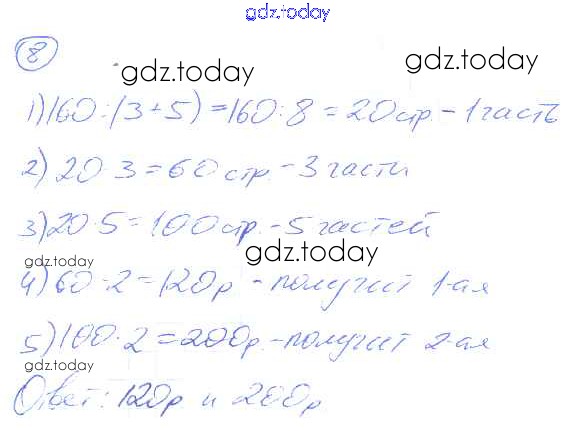 gdz.today
8
gdz.today gdz.today
1) 160 : (3+5) = 160 : 8 = 20 стр. - 1 часть
2) 20 · 3 = 60 стр. - 3 части
3) 20 · 5 = 100 стр. - 5 частей
gdz.today gdz.today
4) 60 · 2 = 120р - получит 1-ая
5) 100 · 2 = 200р. - получит 2-ая
gdz.today
Ответ: 120р и 200р